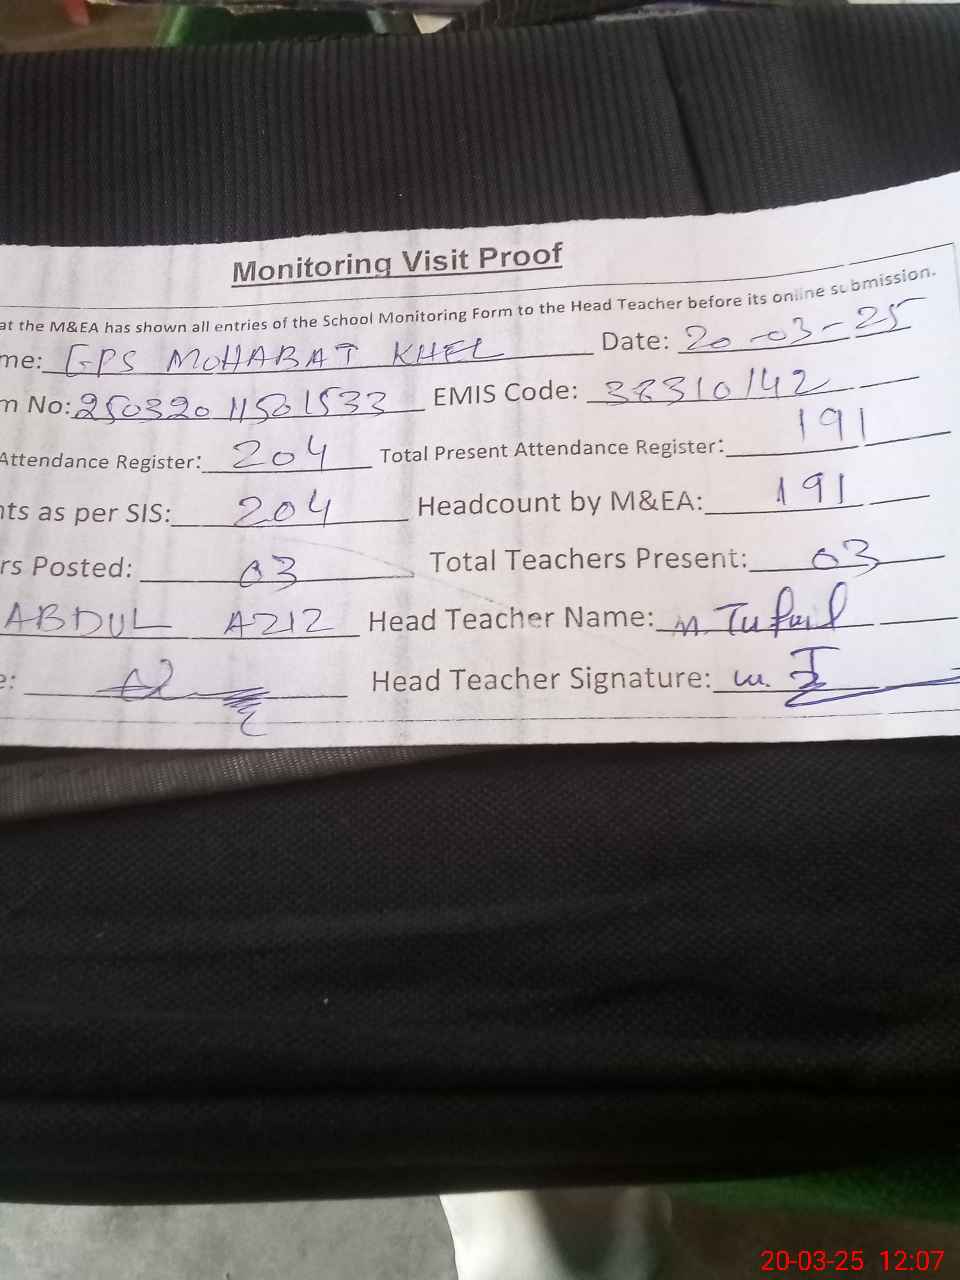 Monitoring Visit Proof
at the M&EA has shown all entries of the School Monitoring Form to the Head Teacher before its online submission.
me: GPS MOHABAT KHEL Date: 20-03-25
m No: 25032011501533 EMIS Code: 38310142
Attendance Register: 204 Total Present Attendance Register: 191
nts as per SIS: 204 Headcount by M&EA: 191
rs Posted: 03 Total Teachers Present: 03
ABDUL AZIZ Head Teacher Name: M. Tufail
e: Head Teacher Signature:
20-03-25 12:07